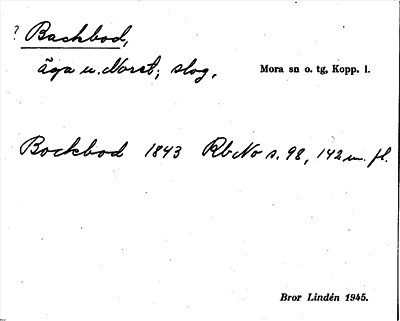 ? Backbod,
äga u. Norst; skog, Mora sn o. tg, Kopp. l.
Bockbod 1843 RbNo s. 98, 142 m. fl.
Bror Lindén 1945.